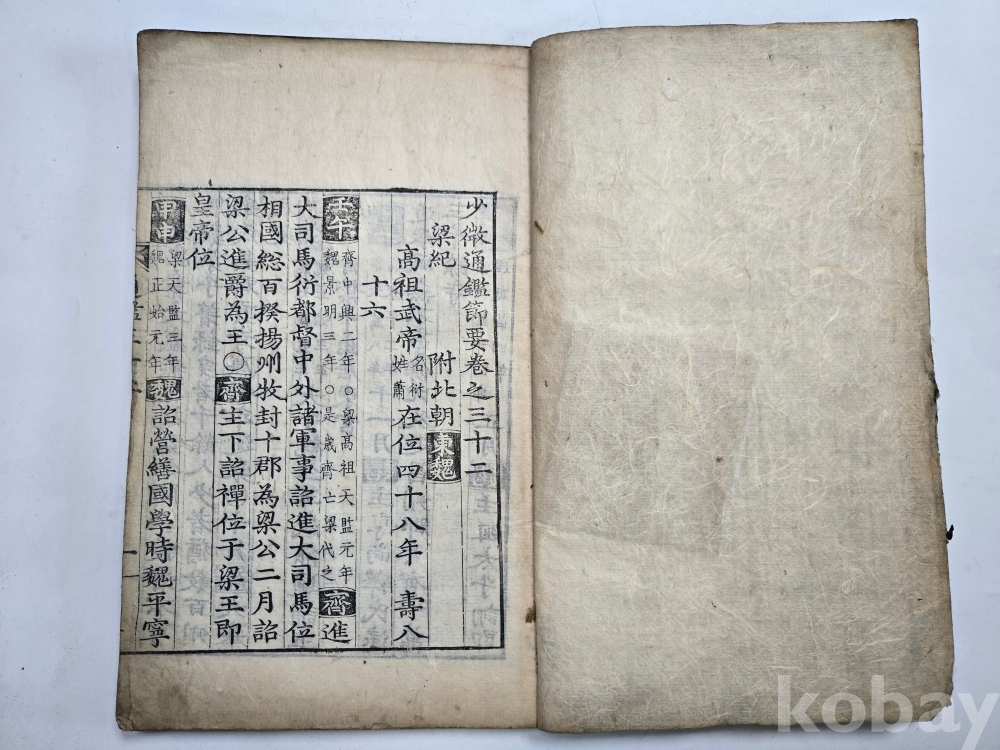 少微通鑑節要卷之三十二
梁紀 附北朝 東魏
高祖武帝 名衍姓蕭 在位四十八年 壽八
十六
壬午 齊中興二年○梁高祖天監元年魏景明三年○是歲齊亡梁代之 齊進
大司馬衍都督中外諸軍事詔進大司馬位
相國総百揆揚州牧封十郡為梁公二月詔
梁公進爵為王○齊主下詔禪位于梁王即
皇帝位
甲申 梁天監三年魏正始元年 魏詔營繕國學時魏平寧
kobay